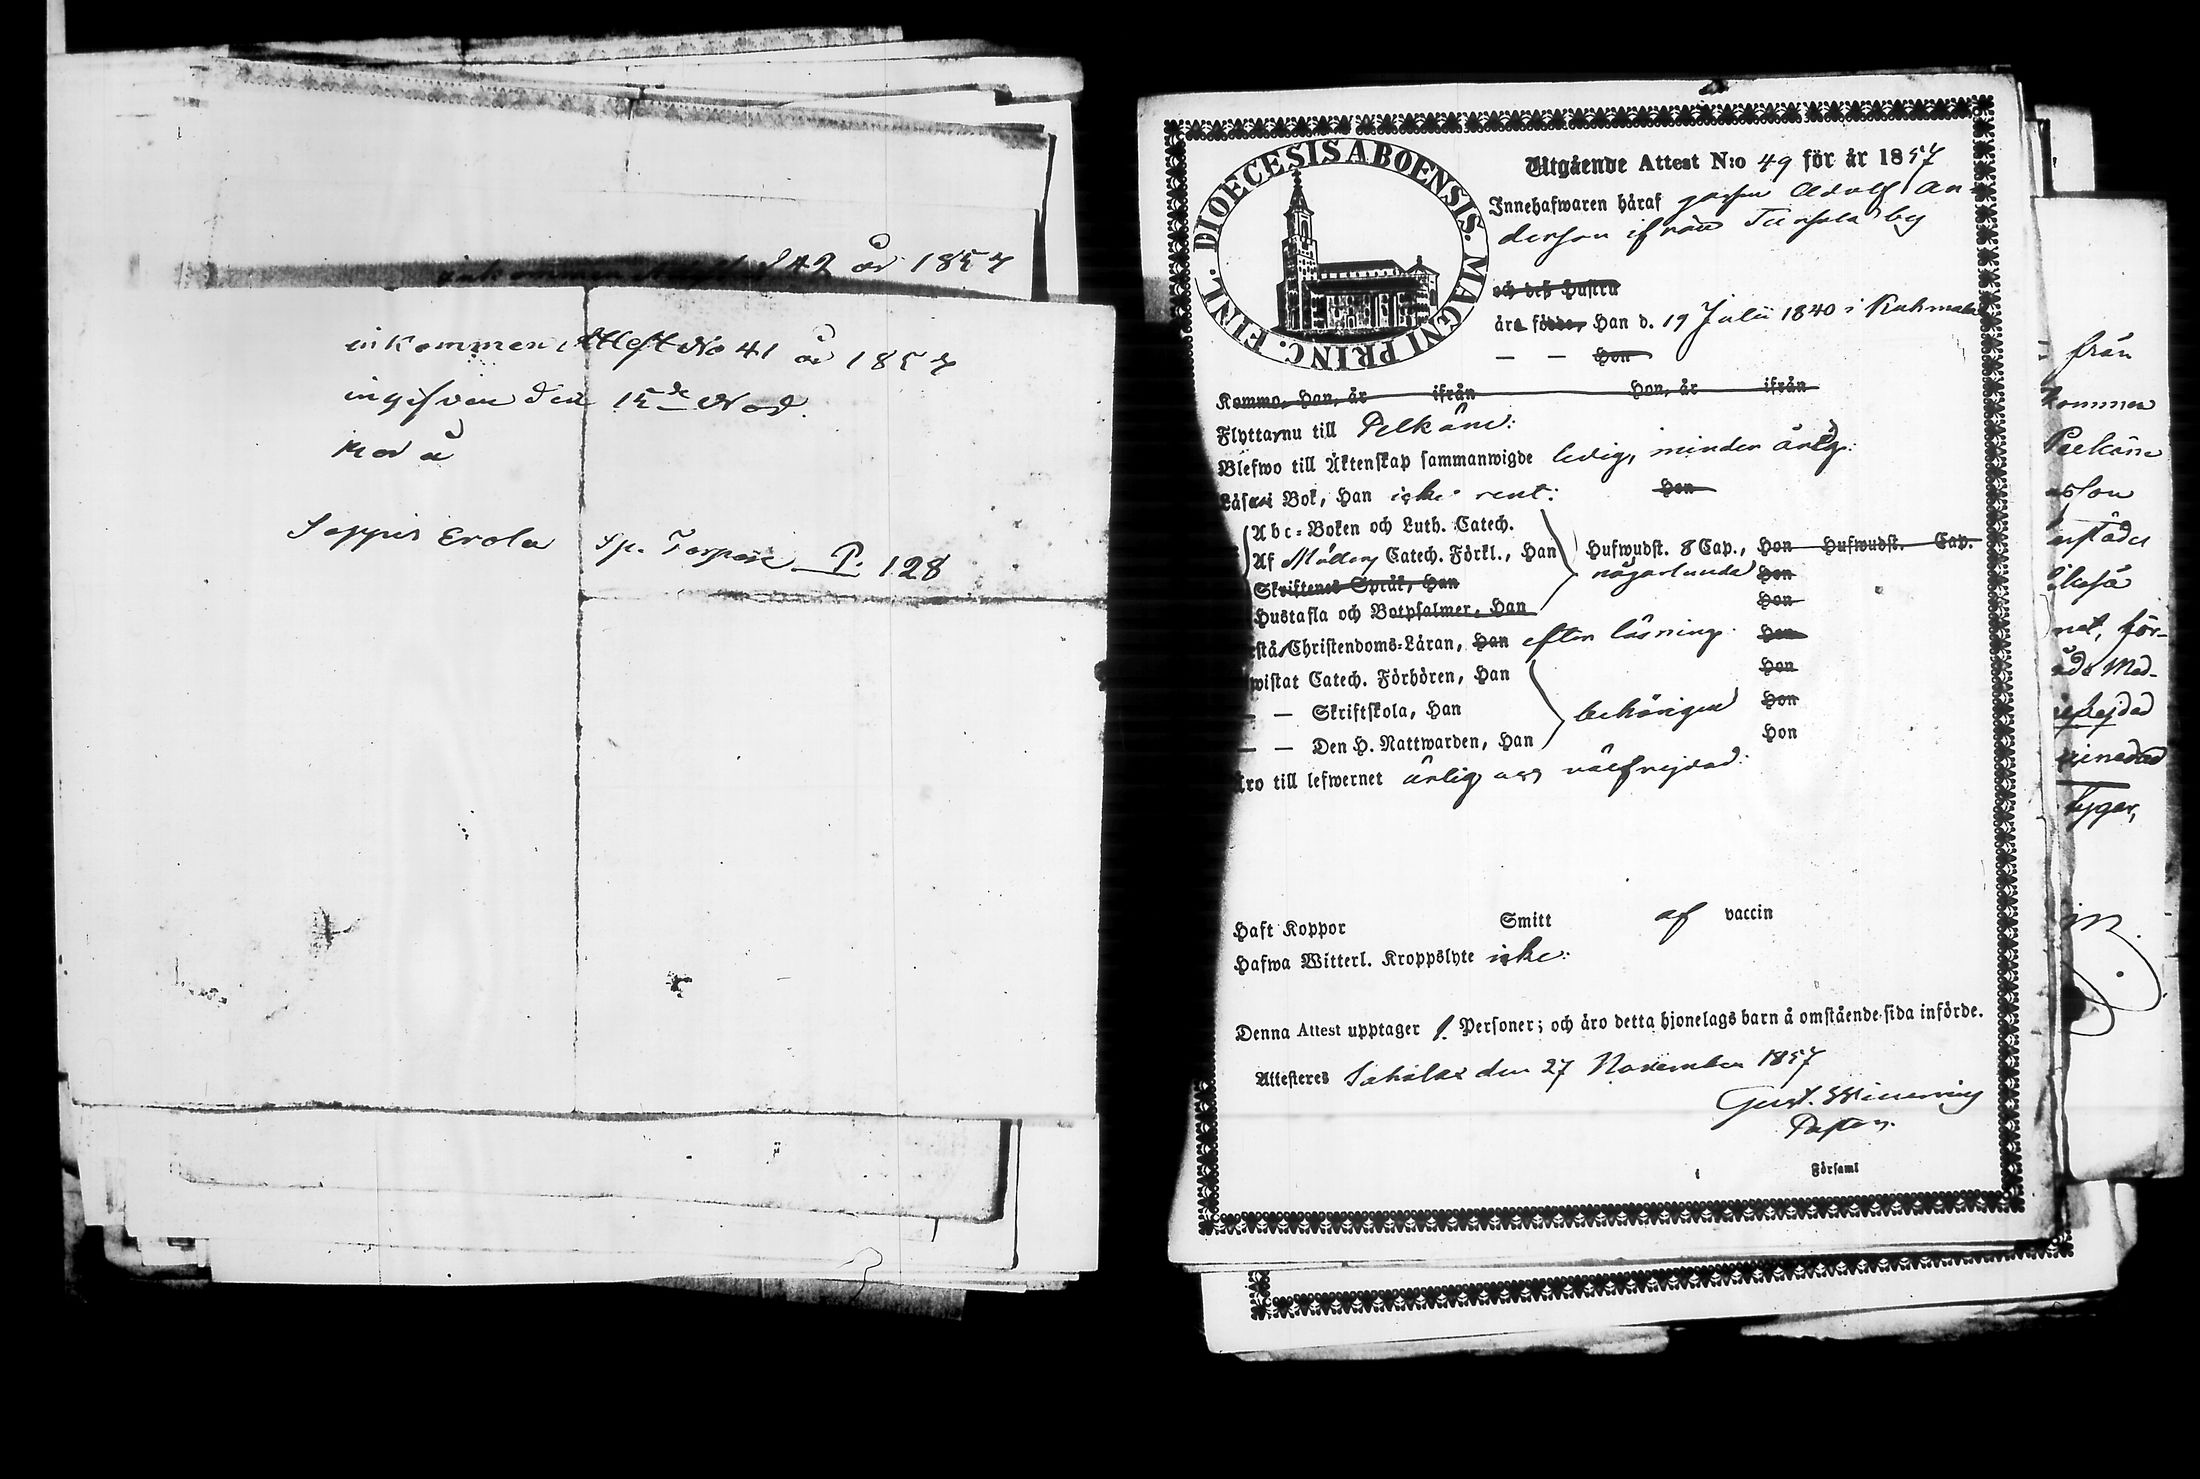 inkommen Attest No 42 år 1857
inkommen Attest No 41 år 1857
ingifven den 15de Nov.
Seppis Erola Sp. Torpare P. 128
DIOECESIS ABOENSIS. MAGNI PRINC. FINL.
Utgående Attest N:o 49 för år 1857
Innehafwaren häraf Adolf An-
derson ifrån by
och deß Hustru
äro födde, Han d. 19 Julii 1840 i Kuhmala
— — Hon
Komma, Han, år ifrån Hon, år ifrån
Flyttar nu till Pelkäne:
Blefwo till Äktenskap sammanwigde ledig, minder årig:
Läsa i Bok, Han icke rent: Hon
Abc-Boken och Luth. Catech.
Af Möllers Catech. Förkl., Han Hufwudst. 8 Cap., Hon Hufwudst. Cap.
Skriftenes Språk, Han någorlunda Hon
Hustafla och Botpsalmer, Han Hon
stå Christendoms-Läran, Han efter läsning. Hon
wistat Catech. Förhören, Han Hon
— — Skriftskola, Han behörigen Hon
— — Den H. Nattwarden, Han Hon
Äro till lefwernet ärlig och välfrejdad:
Haft Koppor Smitt af vaccin
Hafwa Witterl. Kroppslyte icke:
Denna Attest upptager 1. Personer; och äro detta hjonelags barn å omstående sida införde.
Attesteres Sahalax den 27 November 1857
Gust. Winnering
Pastor.
i Församl
från
kommer
Pelkäne
net, för-